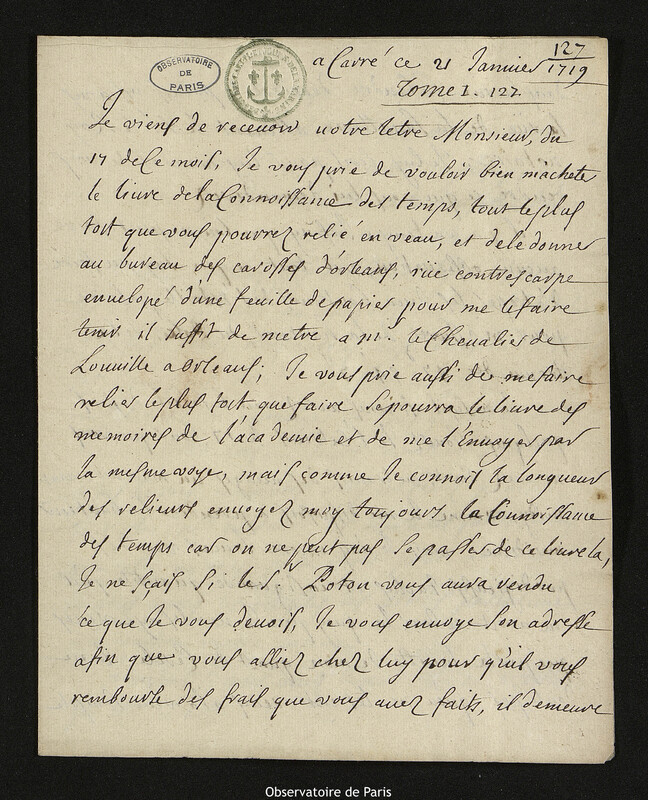 OBSERVATOIRE
DE
PARIS
a Carré ce 21 Janvier 1719
127
Tome I. 127.
Je viens de recevoir votre letre Monsieur, du
17 de ce mois, Je vous prie de vouloir bien m'acheter
le livre de la Connoissance des temps, tout le plus
tost que vous pourrez relié en veau, et de le donner
au bureau des carosses d'orleans, rüe contrescarpe
envelopé d'une feuille de papier pour me le faire
tenir il suffit de metre a mr. le Chevalier de
Louville a orleans; Je vous prie aussi de me faire
relier le plus tost que faire se pourra le livre des
memoires de l'academie et de me l'envoyer par
la mesme voye, mais comme Je connois la longueur
des relieurs envoyez moy toujours la Connoissance
des temps car on ne peut pas se passer de ce livre la,
Je ne sçais si le Sr Poton vous aura rendu
ce que Je vous devois, Je vous envoye son adresse
afin que vous alliez chez luy pour qu'il vous
rembourse des frais que vous avez faits, il demeure
Observatoire de Paris